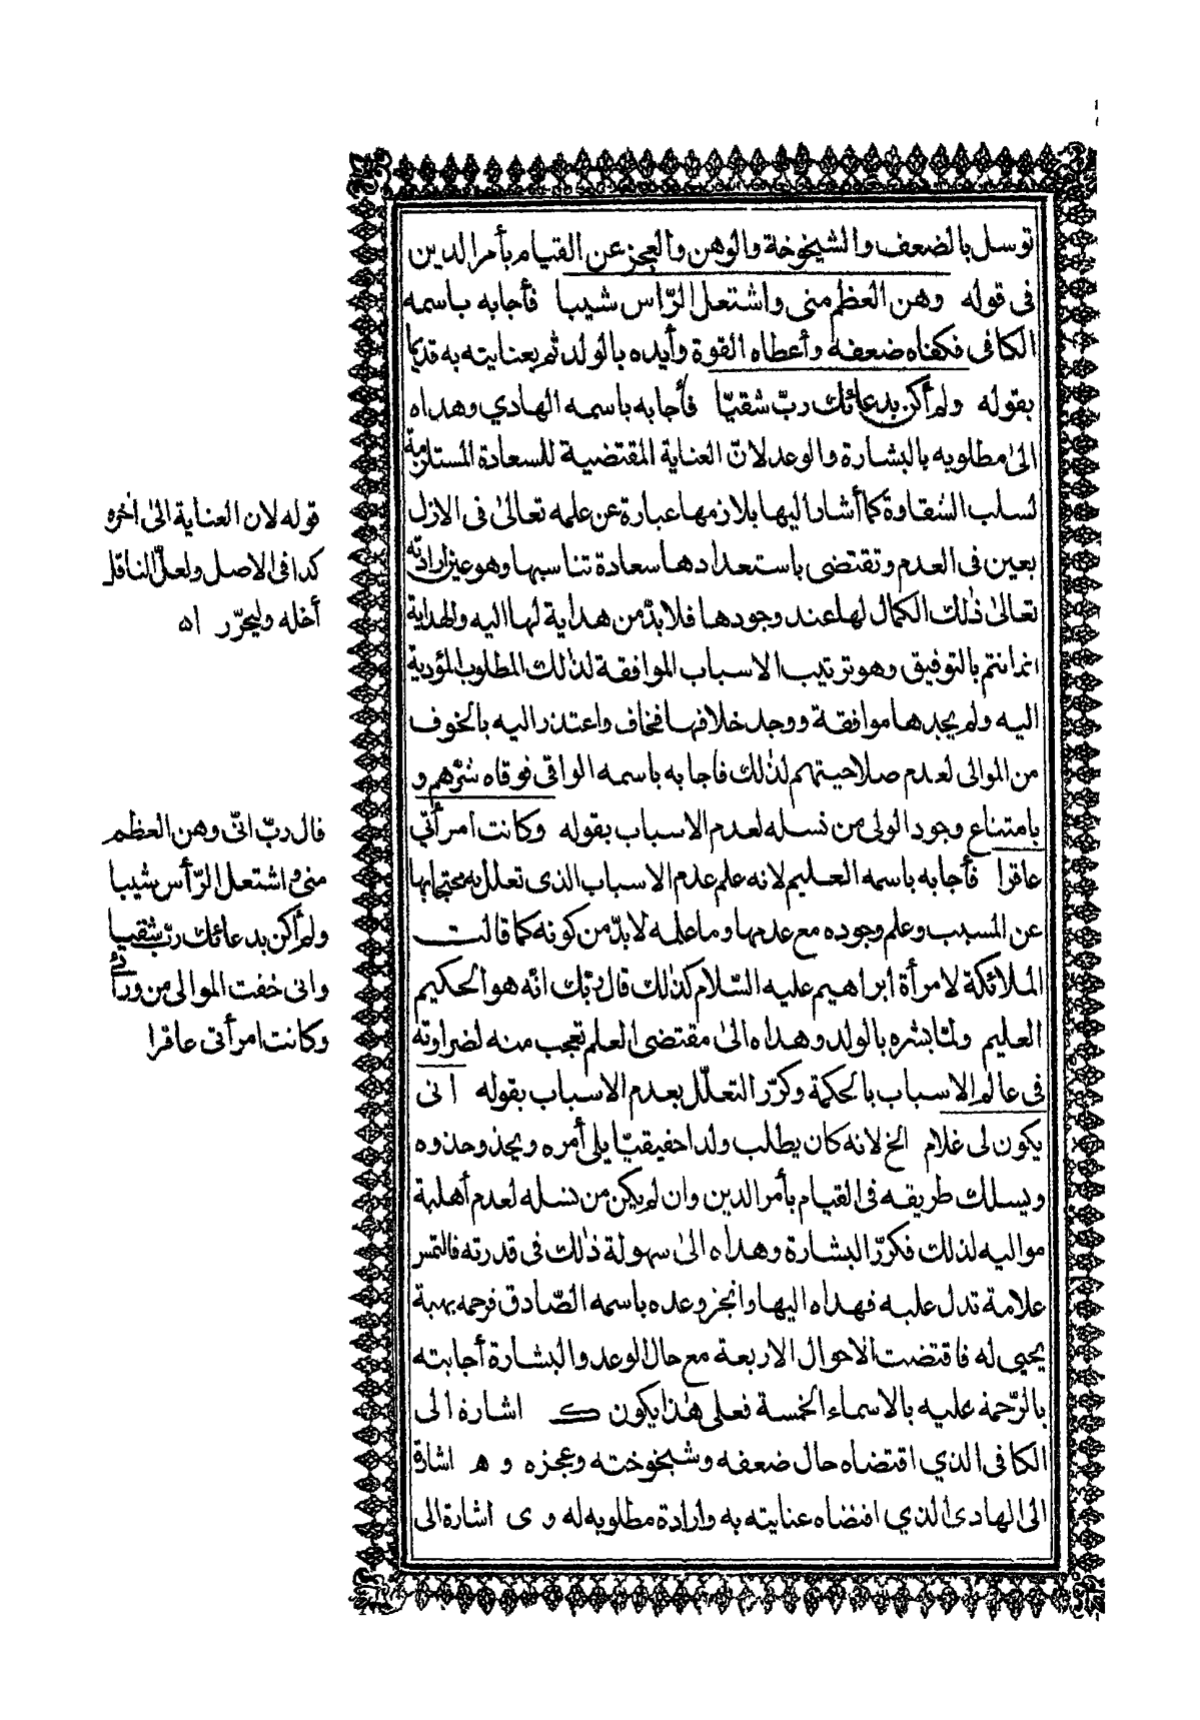 توسل بالضعف والشيخوخة والوهن والعجز عن القيام بأمر الدين
فى قوله وهن العظم منى واشتعل الرّاس شيبا فأجابه باسمه
الكافى فكفاه ضعفه وأعطاه القوة وأيده بالولد ثم بعنايته به قديما
بقوله ولم أكن بدعائك ربّ شقيّا فأجابه باسمه الهادي وهداه
الىٰ مطلوبه بالبشارة والوعد لانّ العناية المقتضية للسعادة المستلزمة
لسلب الشقاوة كما أشار اليها بلازمها عبارة عن علمه تعالىٰ فى الازل
بعين فى العدم وتقتضى باستعدادها سعادة تناسبها وهو عين ارادته
تعالىٰ ذٰلك الكمال لها عند وجودها فلا بدّ من هداية لها اليه والهداية
انما تتم بالتوفيق وهو ترتيب الاسباب الموافقة لذٰلك المطلوب المؤدية
اليه ولم يجدها موافقة ووجد خلافها فخاف واعتذر اليه بالخوف
من الموالى لعدم صلاحيتهم لذٰلك فأجابه باسمه الواقى فوقاه شرّهم و
بامتناع وجود الولى من نسله لعدم الاسباب بقوله وكانت امرأتي
عاقرا فأجابه باسمه العليم لانه علم عدم الاسباب الذى تعلل به محتجا بها
عن المسبب وعلم وجوده مع عدمها وما علمه لا بدّ من كونه كما قالت
الملائكة لامرأة ابراهيم عليه السّلام كذلك قال ربّك انّه هو الحكيم
العليم ولمّا بشره بالولد وهداه الىٰ مقتضى العلم تعجب منه لضراوته
فى عالم الاسباب بالحكمة وكرّر التعلّل بعدم الاسباب بقوله أنى
يكون لى غلام الخ لانه كان يطلب ولدا حقيقيّا يلى أمره ويحذو حذوه
ويسلك طريقه فى القيام بأمر الدين وان لم يكن من نسله لعدم أهلية
مواليه لذلك فكرّر البشارة وهداه الىٰ سهولة ذٰلك فى قدرته فالتمس
علامة تدل عليه فهداه اليها وانجز وعده باسمه الصّادق فرحمه بهبة
يحيى له فاقتضت الاحوال الاربعة مع حال الوعد والبشارة أجابته
بالرّحمة عليه بالاسماء الخمسة فعلى هٰذا يكون ك اشارة الى
الكافى الذي اقتضاه حال ضعفه وشيخوخته وعجزه و ه اشارة
الى الهادى الذي اقتضاه عنايته به وارادة مطلوبه له و ى اشارة الى
قوله لان العناية الىٰ أخره
كذا فى الاصل ولعلّ الناقل
أخله وليحرّر اه
قال ربّ انّى وهن العظم
منى واشتعل الرّأس شيبا
ولم أكن بدعائك ربّ شقيا
وانى خفت الموالى من ورائى
وكانت امرأتى عاقرا